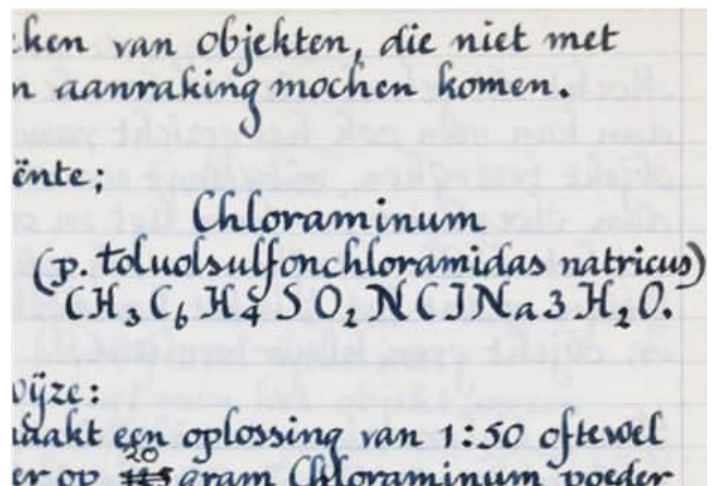 ken van objekten, die niet met
n aanraking mochen komen.
ënte;
Chloraminum
(p. toluolsulfonchloramidas natricus)
CH₃C₆H₄SO₂NClNa3H₂O.
wijze:
maakt een oplossing van 1:50 oftewel
20
er op gram Chloraminum poeder